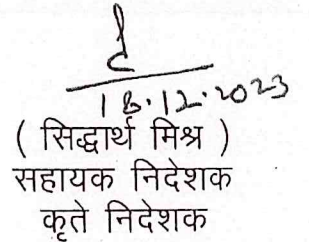 18.12.2023
( सिद्धार्थ मिश्र )
सहायक निदेशक
कृते निदेशक